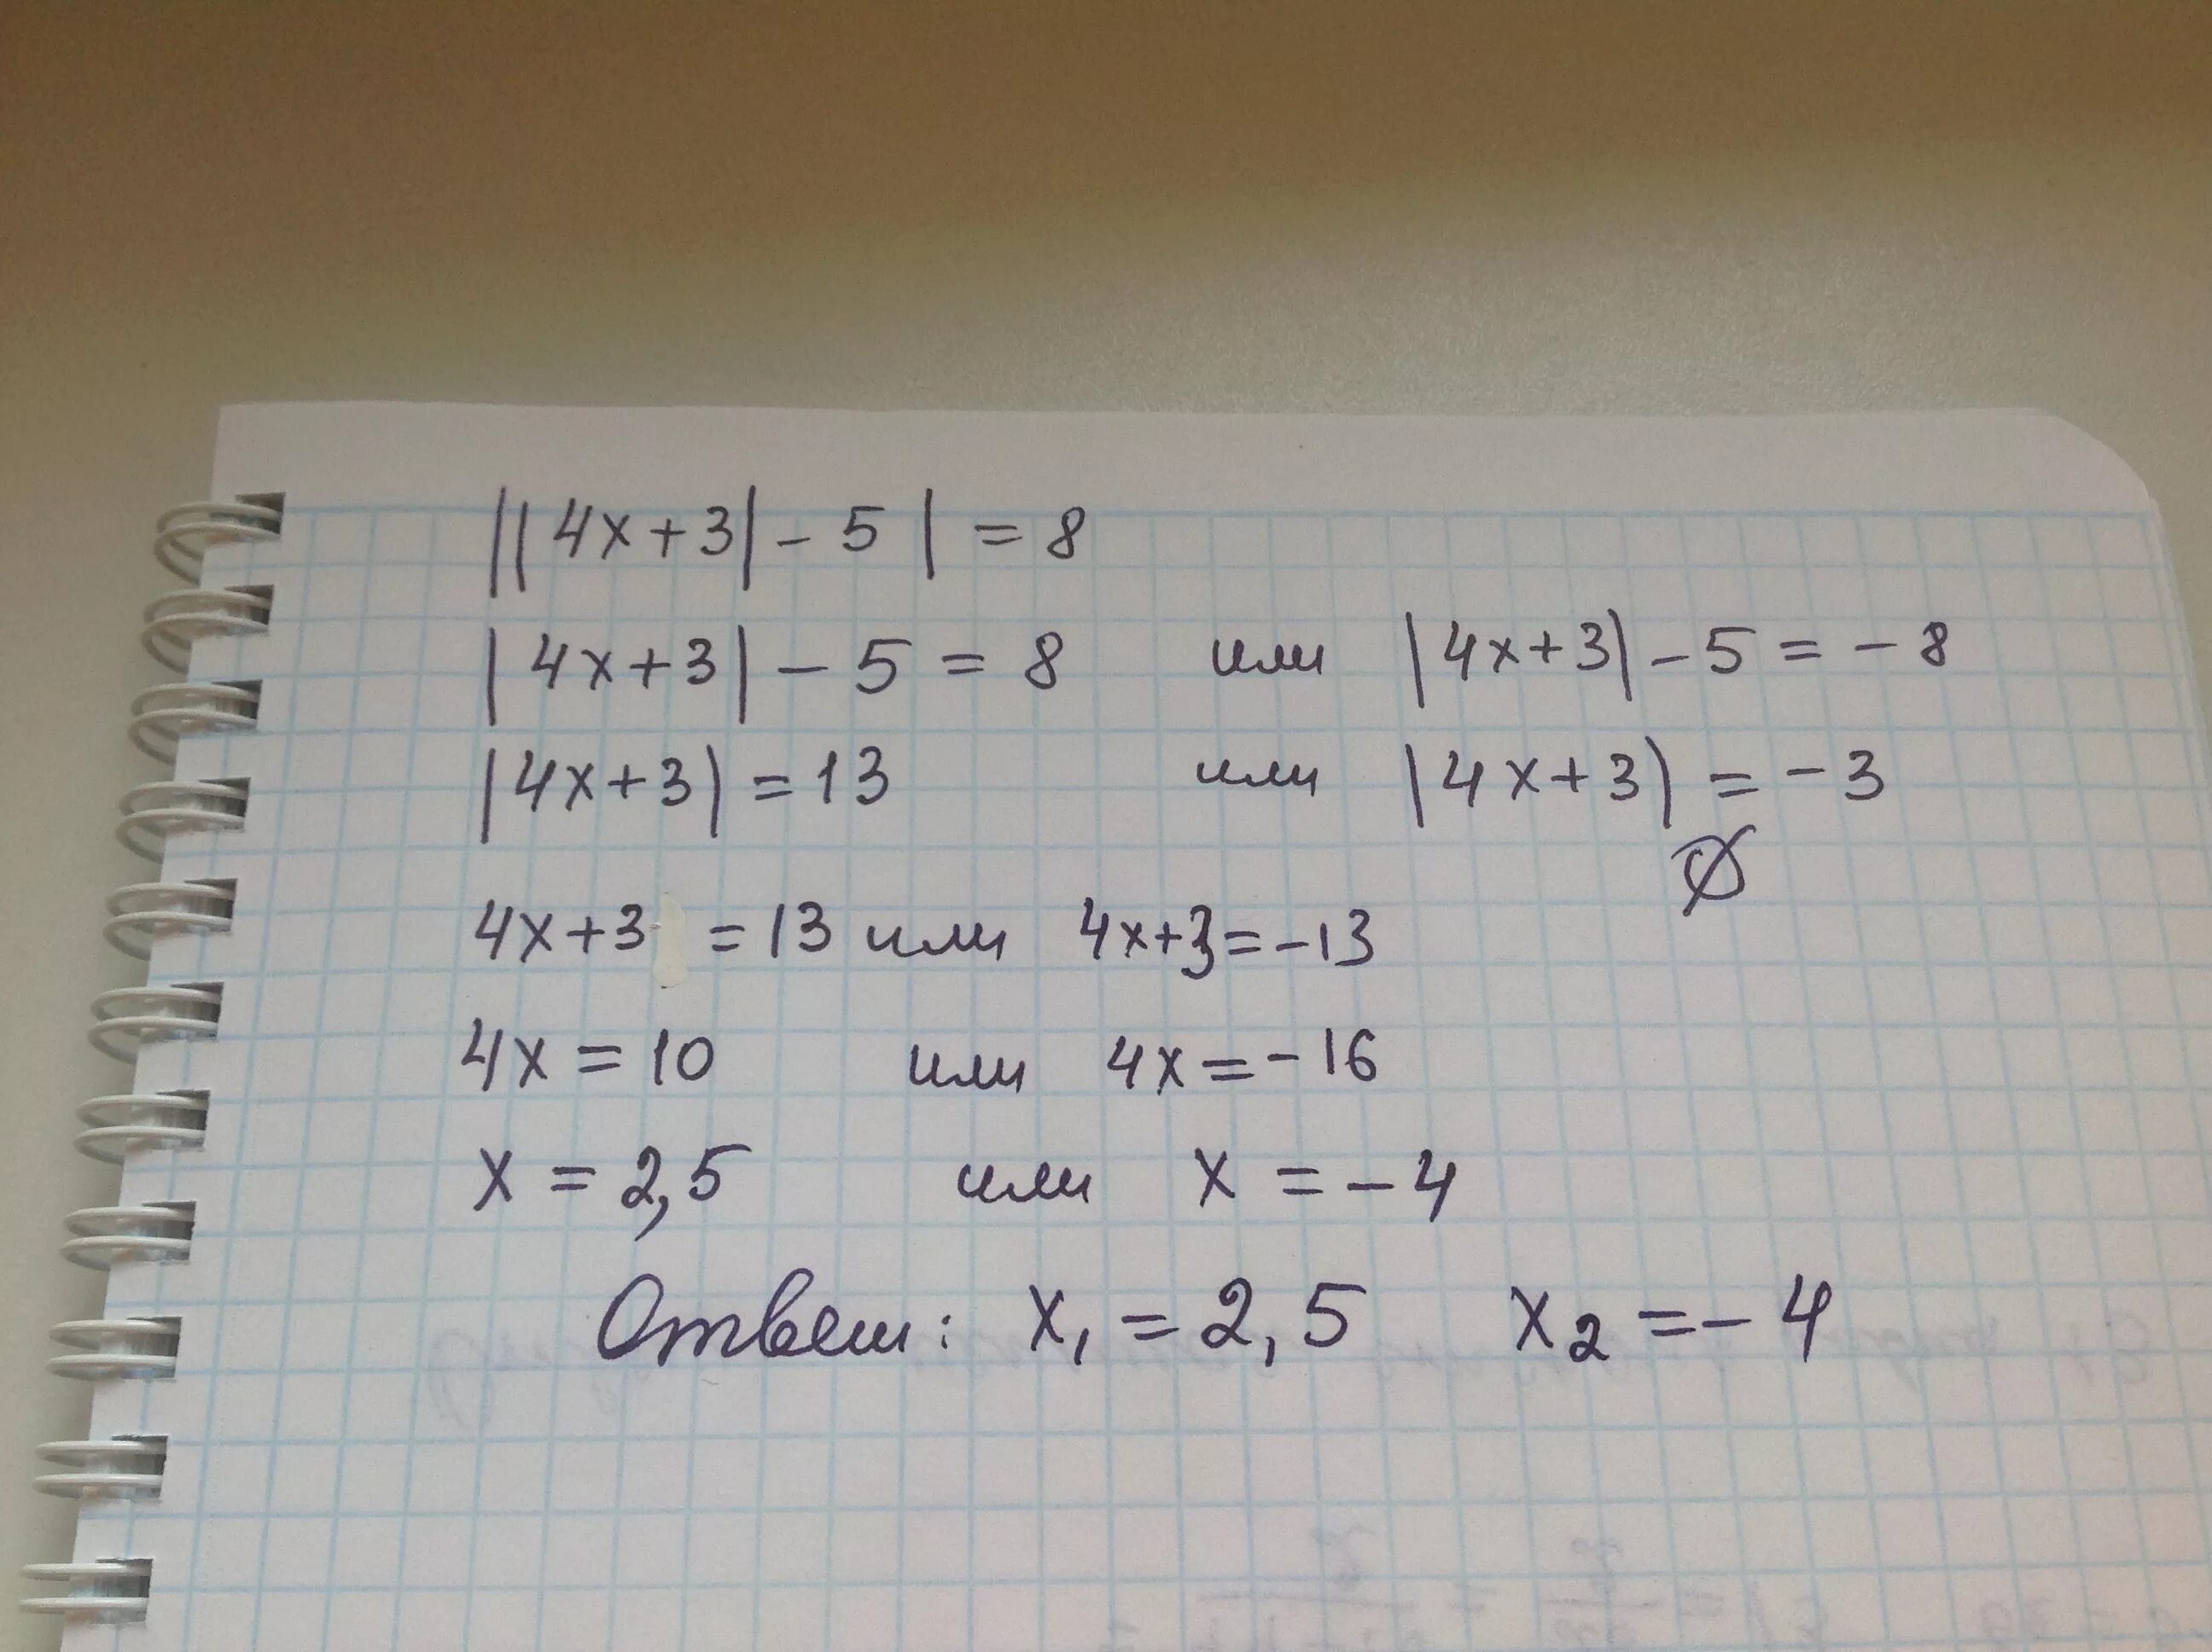 ||4x+3|-5|=8
|4x+3|-5=8 или |4x+3|-5=-8
|4x+3|=13 или |4x+3|=-3
∅
4x+3=13 или 4x+3=-13
4x=10 или 4x=-16
x=2,5 или x=-4
Ответ: x₁=2,5 x₂=-4